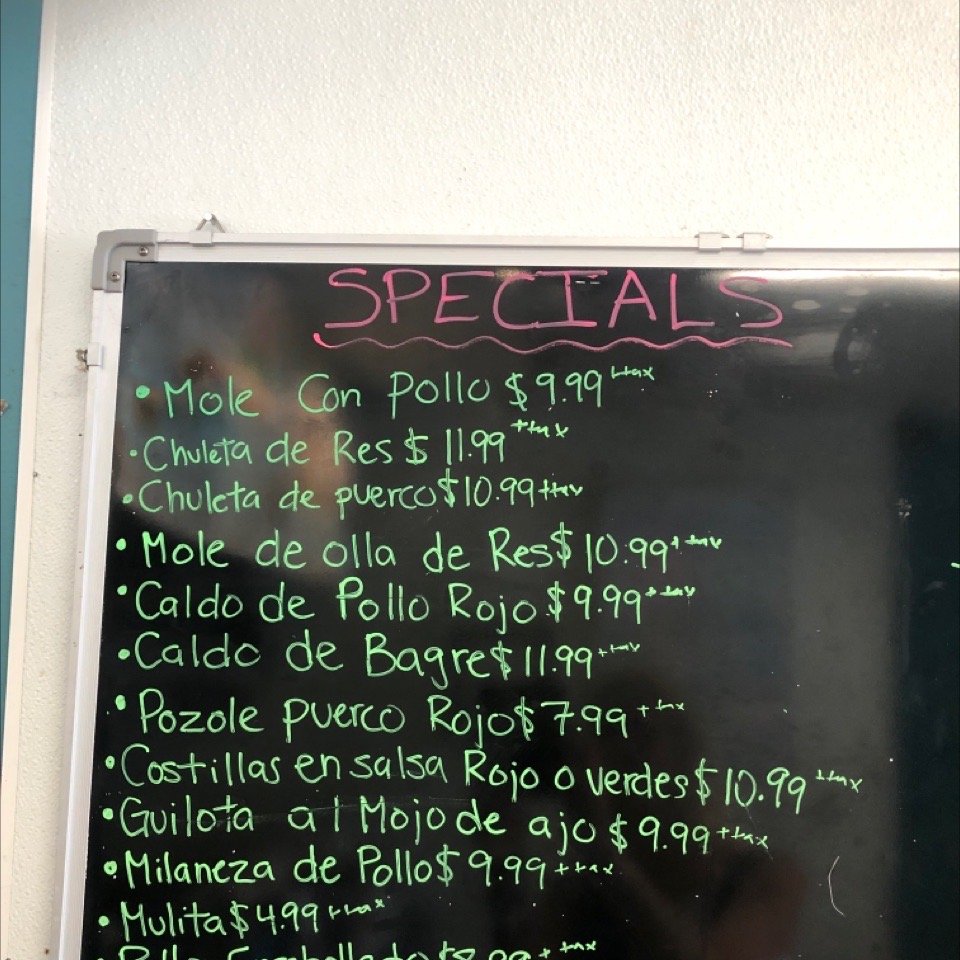 SPECIALS
• Mole Con Pollo $9.99 +tax
• Chuleta de Res $ 11.99 +tax
• Chuleta de puerco $10.99 +tax
• Mole de olla de Res $10.99 +tax
• Caldo de Pollo Rojo $9.99 +tax
• Caldo de Bagre $11.99 +tax
• Pozole puerco Rojo $7.99 +tax
• Costillas en salsa Rojo o verdes $10.99 +tax
• Guilota al Mojo de ajo $9.99 +tax
• Milaneza de Pollo $9.99 +tax
• Mulita $4.99 +tax